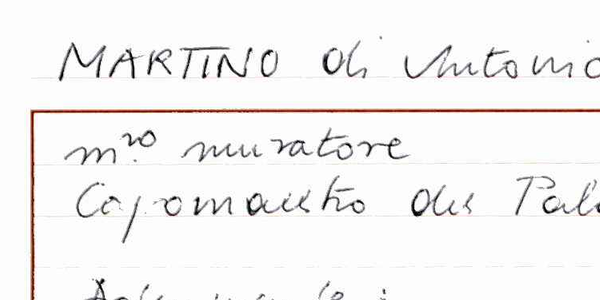 MARTINO di Antonio
m.ro muratore
Capomaestro del